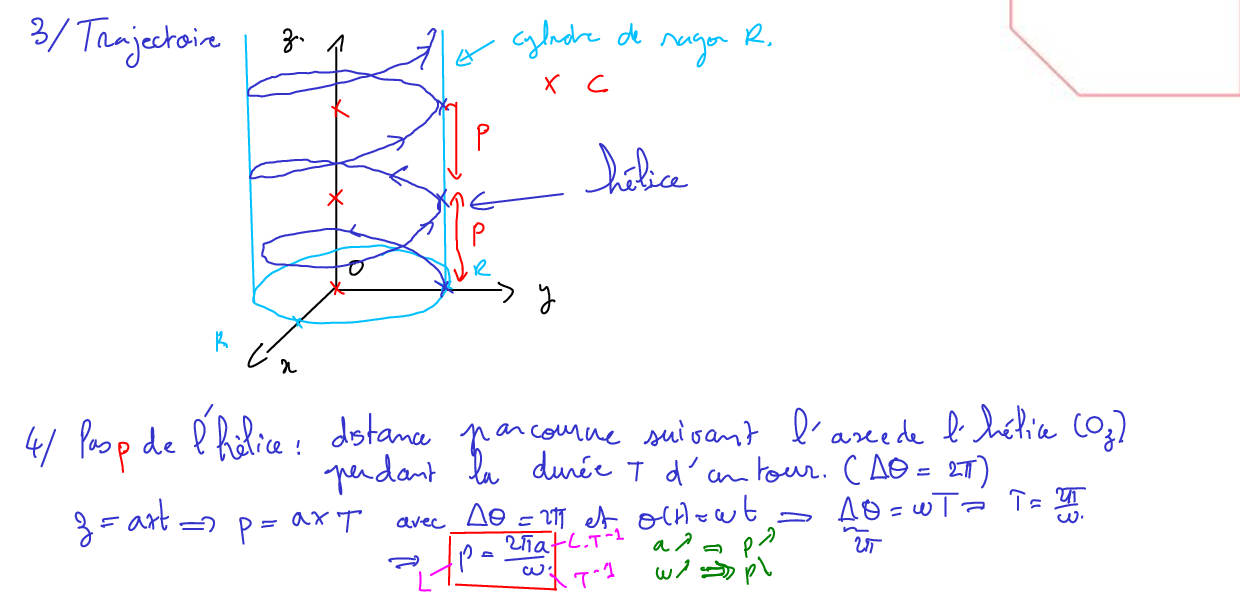 3/ Trajectoire
z
cylindre de rayon R.
x C
p
hélice
p
O
R
y
R
x
4/ Pas p de l'hélice : distance parcourue suivant l'axe de l'hélice (Oz)
pendant la durée T d'un tour. (Δθ = 2π)
z = a×t ⇒ p = a×T avec Δθ = 2π et θ(t) = ωt ⇒ Δθ = ωT ⇒ T = 2π/ω.
2π
⇒ p = 2πa/ω. L.T⁻¹ a↗ ⇒ p↗
L T⁻¹ ω↗ ⇒ p↘